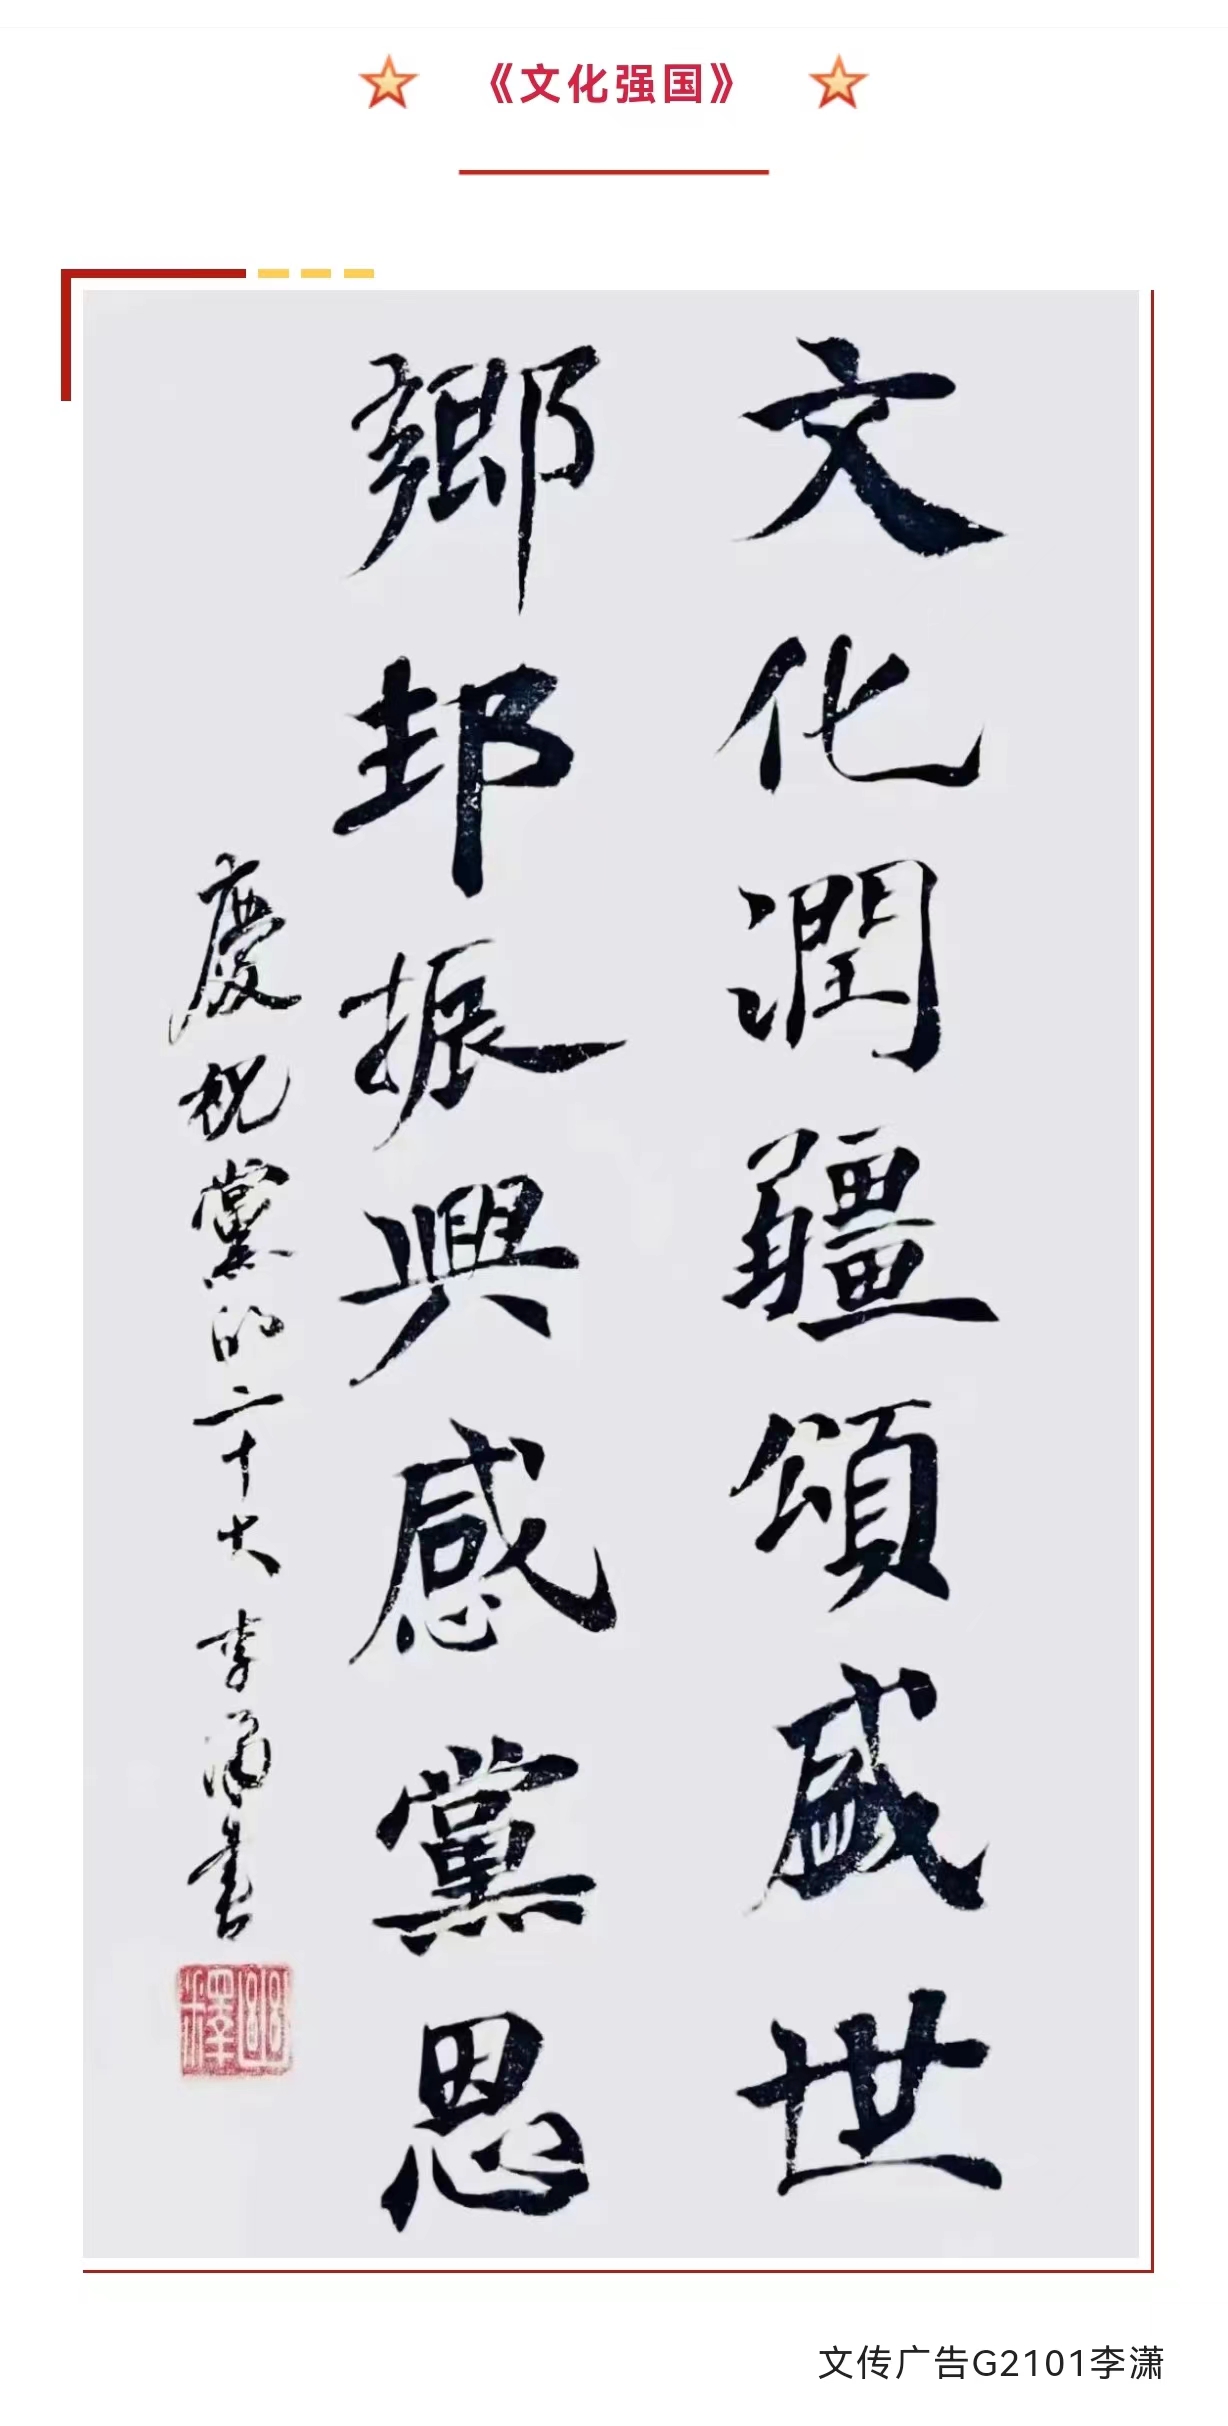 《文化强国》
文化潤疆頌盛世
鄉邦振興感黨恩
慶祝黨的二十大 李瀟書
文传广告G2101李潇